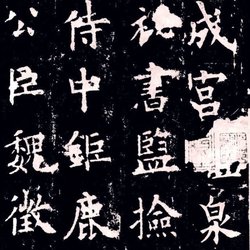 成宮醴泉
祕書監撿
侍中鉅鹿
公臣魏徵